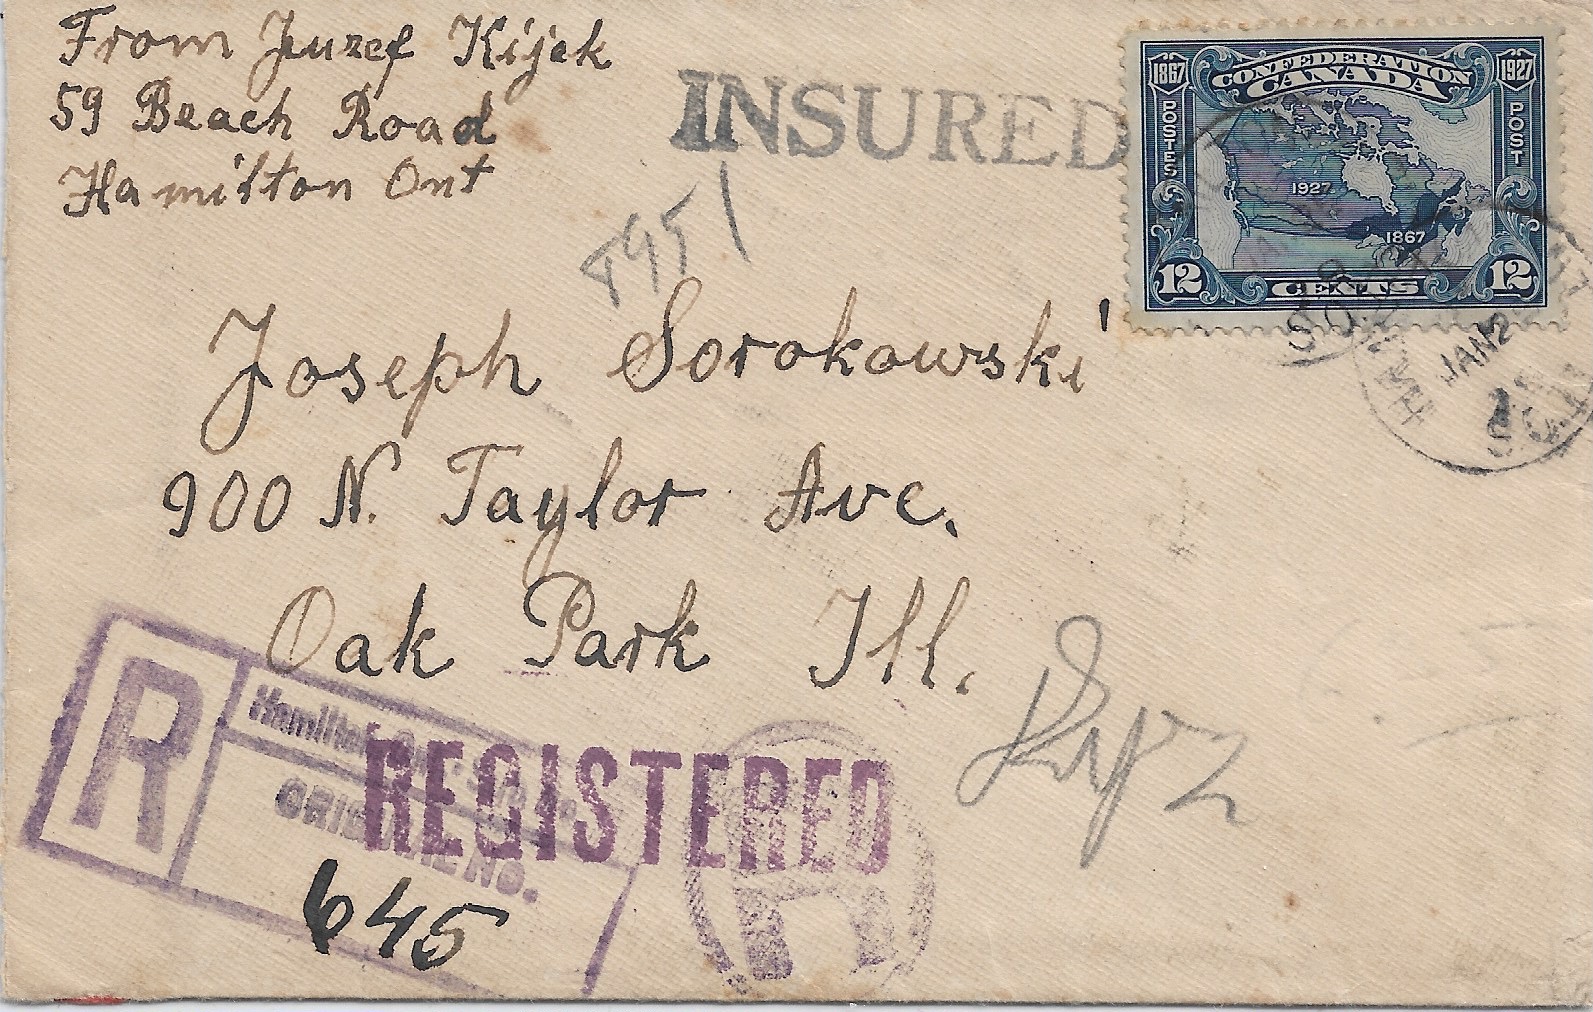 From Juuzef Kijek
59 Beach Road
Hamilton Ont
INSURED
8951
1867 CONFEDERATION 1927
CANADA
POSTES
POST
1927
1867
12 CENTS 12
JAN 2
Joseph Sorokowski
900 N. Taylor Ave.
Oak Park Ill.
R
Hamilton
ORIGINAL No.
REGISTERED
645
R